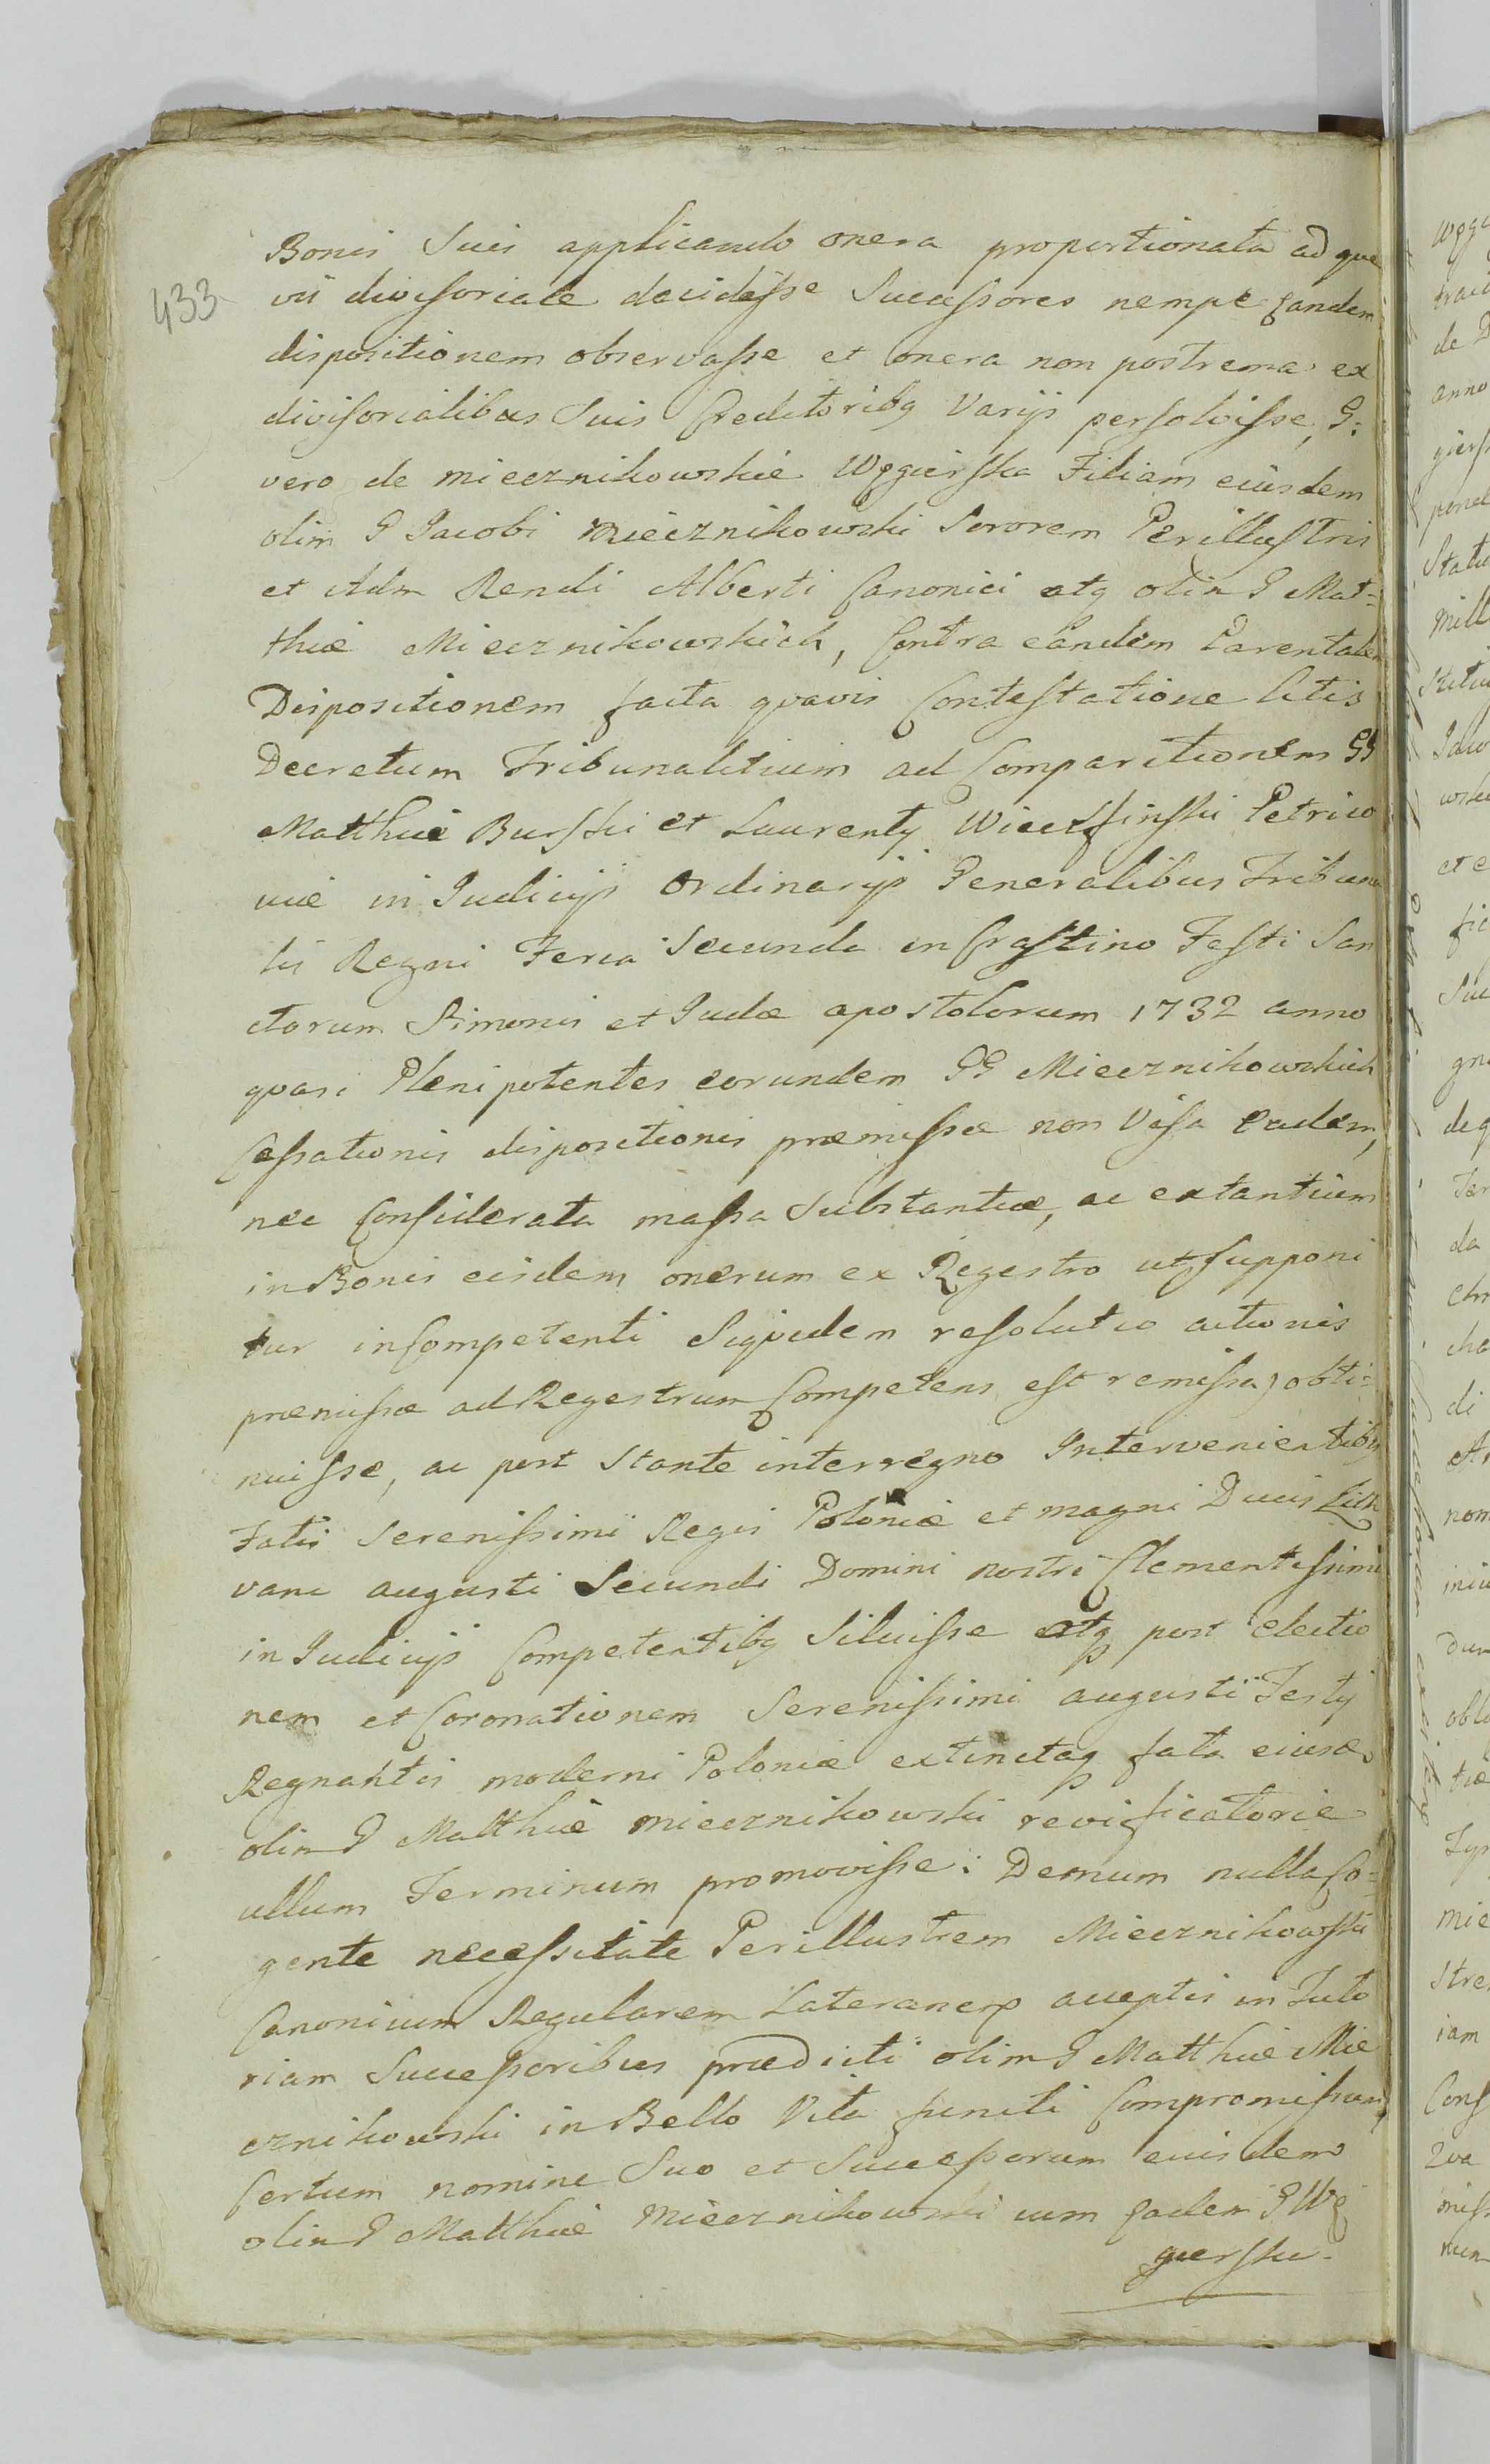 433
Bonis Suis applicando onera proportionata ad que
vis divisoriale decidisse Successores nempe Eandem
dispositionem observasse et onera non postrema ex
divisorialibus Suis Creditoribq Varijs persolvisse, G:
vero de Miecznikowskie Węgierska Filiam eiusdem
olim G Jacobi Miecznikowski Sororem Perillustris
et Adm Rendi Alberti Canonici atq olim G Mat=
thiæ Miecznikowskich, Contra eandem Parentalem
Dispositionem facta qvavis Contestatione litis
Decretum Tribunalitium ad Comparitionem GG
Matthiæ Burski et Laurentij Wierzfinski Petrico
viæ in Judicijs Ordinarijs Generalibus Tribuna
lis Regni Feria Secunda in Crastino Festi San
ctorum Simonis et Judæ apostolorum 1732 anno
qvasi Plenipotentes eorundem GG Miecznikowskich
Cessationis dispositionis præmissæ non Visa eadem,
nec Considerata massa Substantiæ, ac extantium
in Bonis eisdem onerum ex Regestro ut Supponi
tur inCompetenti Siqvidem resolutio actionis
præmissæ ad Regestrum Competens est remissa, obti=
nuisse, ac post Stante interregno Intervenientibq
Fatis Serenissimi Regis Poloniæ et magni Ducis Lith
vani augusti Secundi Domini nostri Clementissimi
in Judicijs Competentibq Siluisse atq post electio
nem et Coronationem Serenissimi augusti Tertij
Regnantis moderni Poloniæ extinctaq fata eiusd
olim G Matthiæ Miecznikowski revificatorie
ullum Terminum promovisse: Demum nulla Co=
gente necessitate Perillustrem Miecznikowski
Canonicum Regularem Lateranen acceptis in Tuto
riam Successoribus prædicti olim G Matthiæ Mie
cznikowski in Bello Vita functi Compromissum
Certum nomine Suo et Successorum eiusdem
olim G Matthiæ Miecznikowski cum Eadem G Wę
gierska